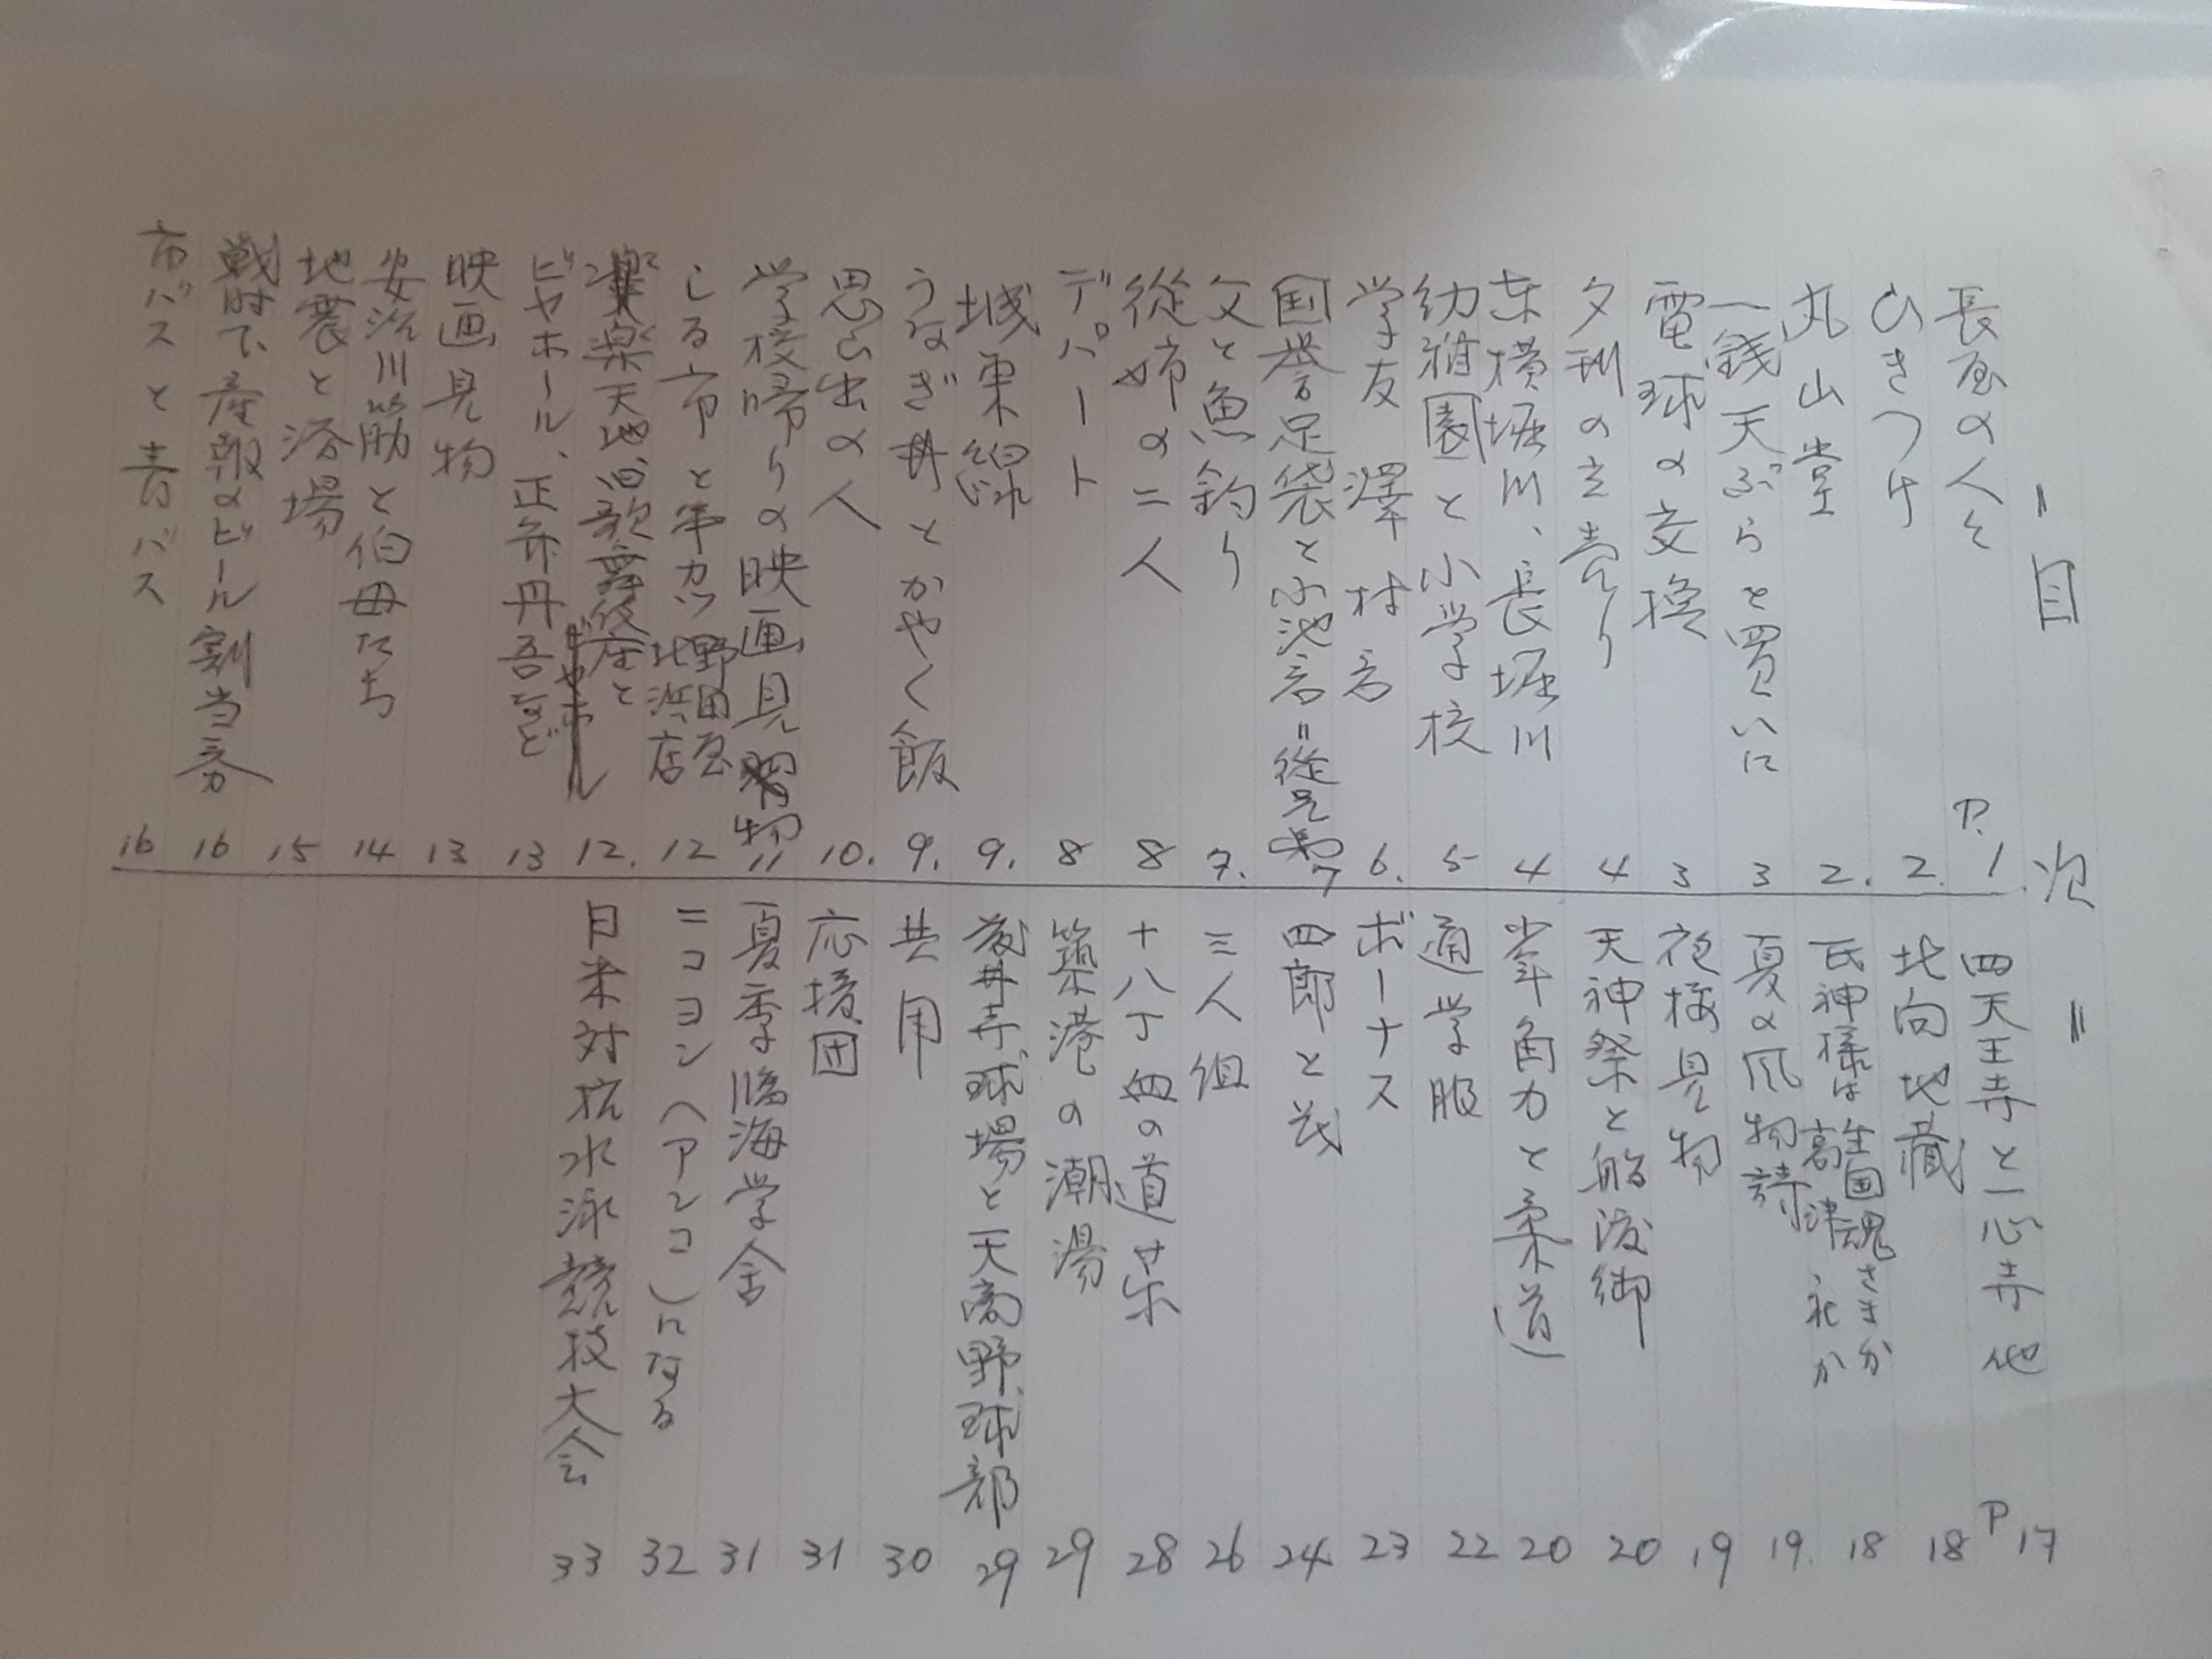 = 目 次 =
長屋の人々 P.1
ひきつけ 2.
丸山堂 2.
一銭天ぷらを買いに 3
電球の交換 3
夕刊の立売り 4
東横堀川、長堀川 4
幼稚園と小学校 5
学友 澤村君 6.
国誉足袋と小池君=従兄弟 7
父と魚釣り 7.
従姉の二人 8
デパート 8
城東線 9.
うなぎ丼とかやく飯 9.
思い出の人 10.
学校帰りの映画見物 11
しる市と串カツ 野田屋北浜店 12
楽天地、旧歌舞伎座と 12.
ビヤホール、正弁丹吾など 13
映画見物 13
安治川筋と伯母たち 14
地震と浴場 15
戦時下、産報のビール割当券 16
市バスと青バス 16
四天王寺と一心寺他 P17
北向地蔵 18
氏神様は生国魂さまか高津、礼か 18
夏の風物詩 19.
夜桜見物 19
天神祭と船渡御 20
少年角力と柔道 20
通学服 22
ボーナス 23
四郎と茂 24
三人組 26
十八丁 血の道 サ楽 28
築港の潮湯 29
藤井寺球場と天商野球部 29
共用 30
応援団 31
夏季臨海学舎 31
ニコヨン(アンコ)になる 32
日米対抗水泳競技大会 33